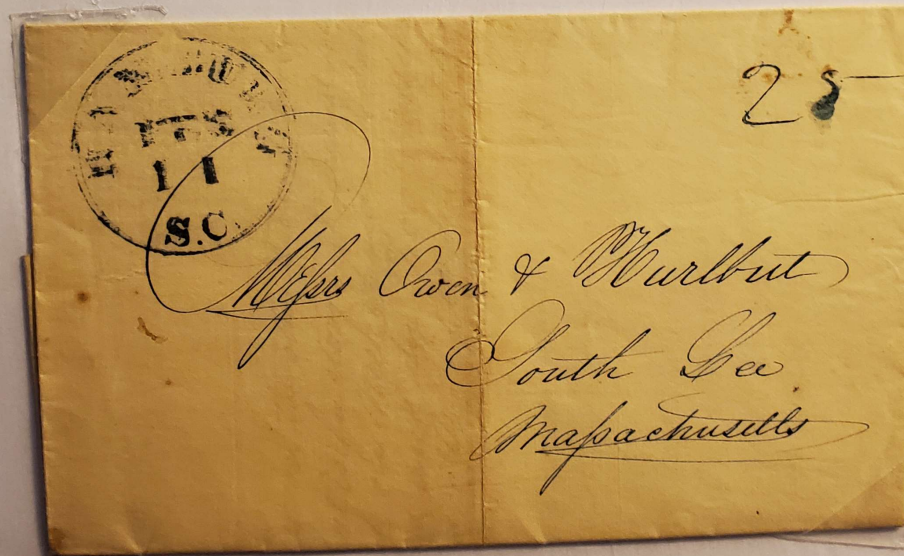 HAMBURG
FEB
11
S.C.
25
Messrs Owen & Hurlbut
South Lee
Massachusetts